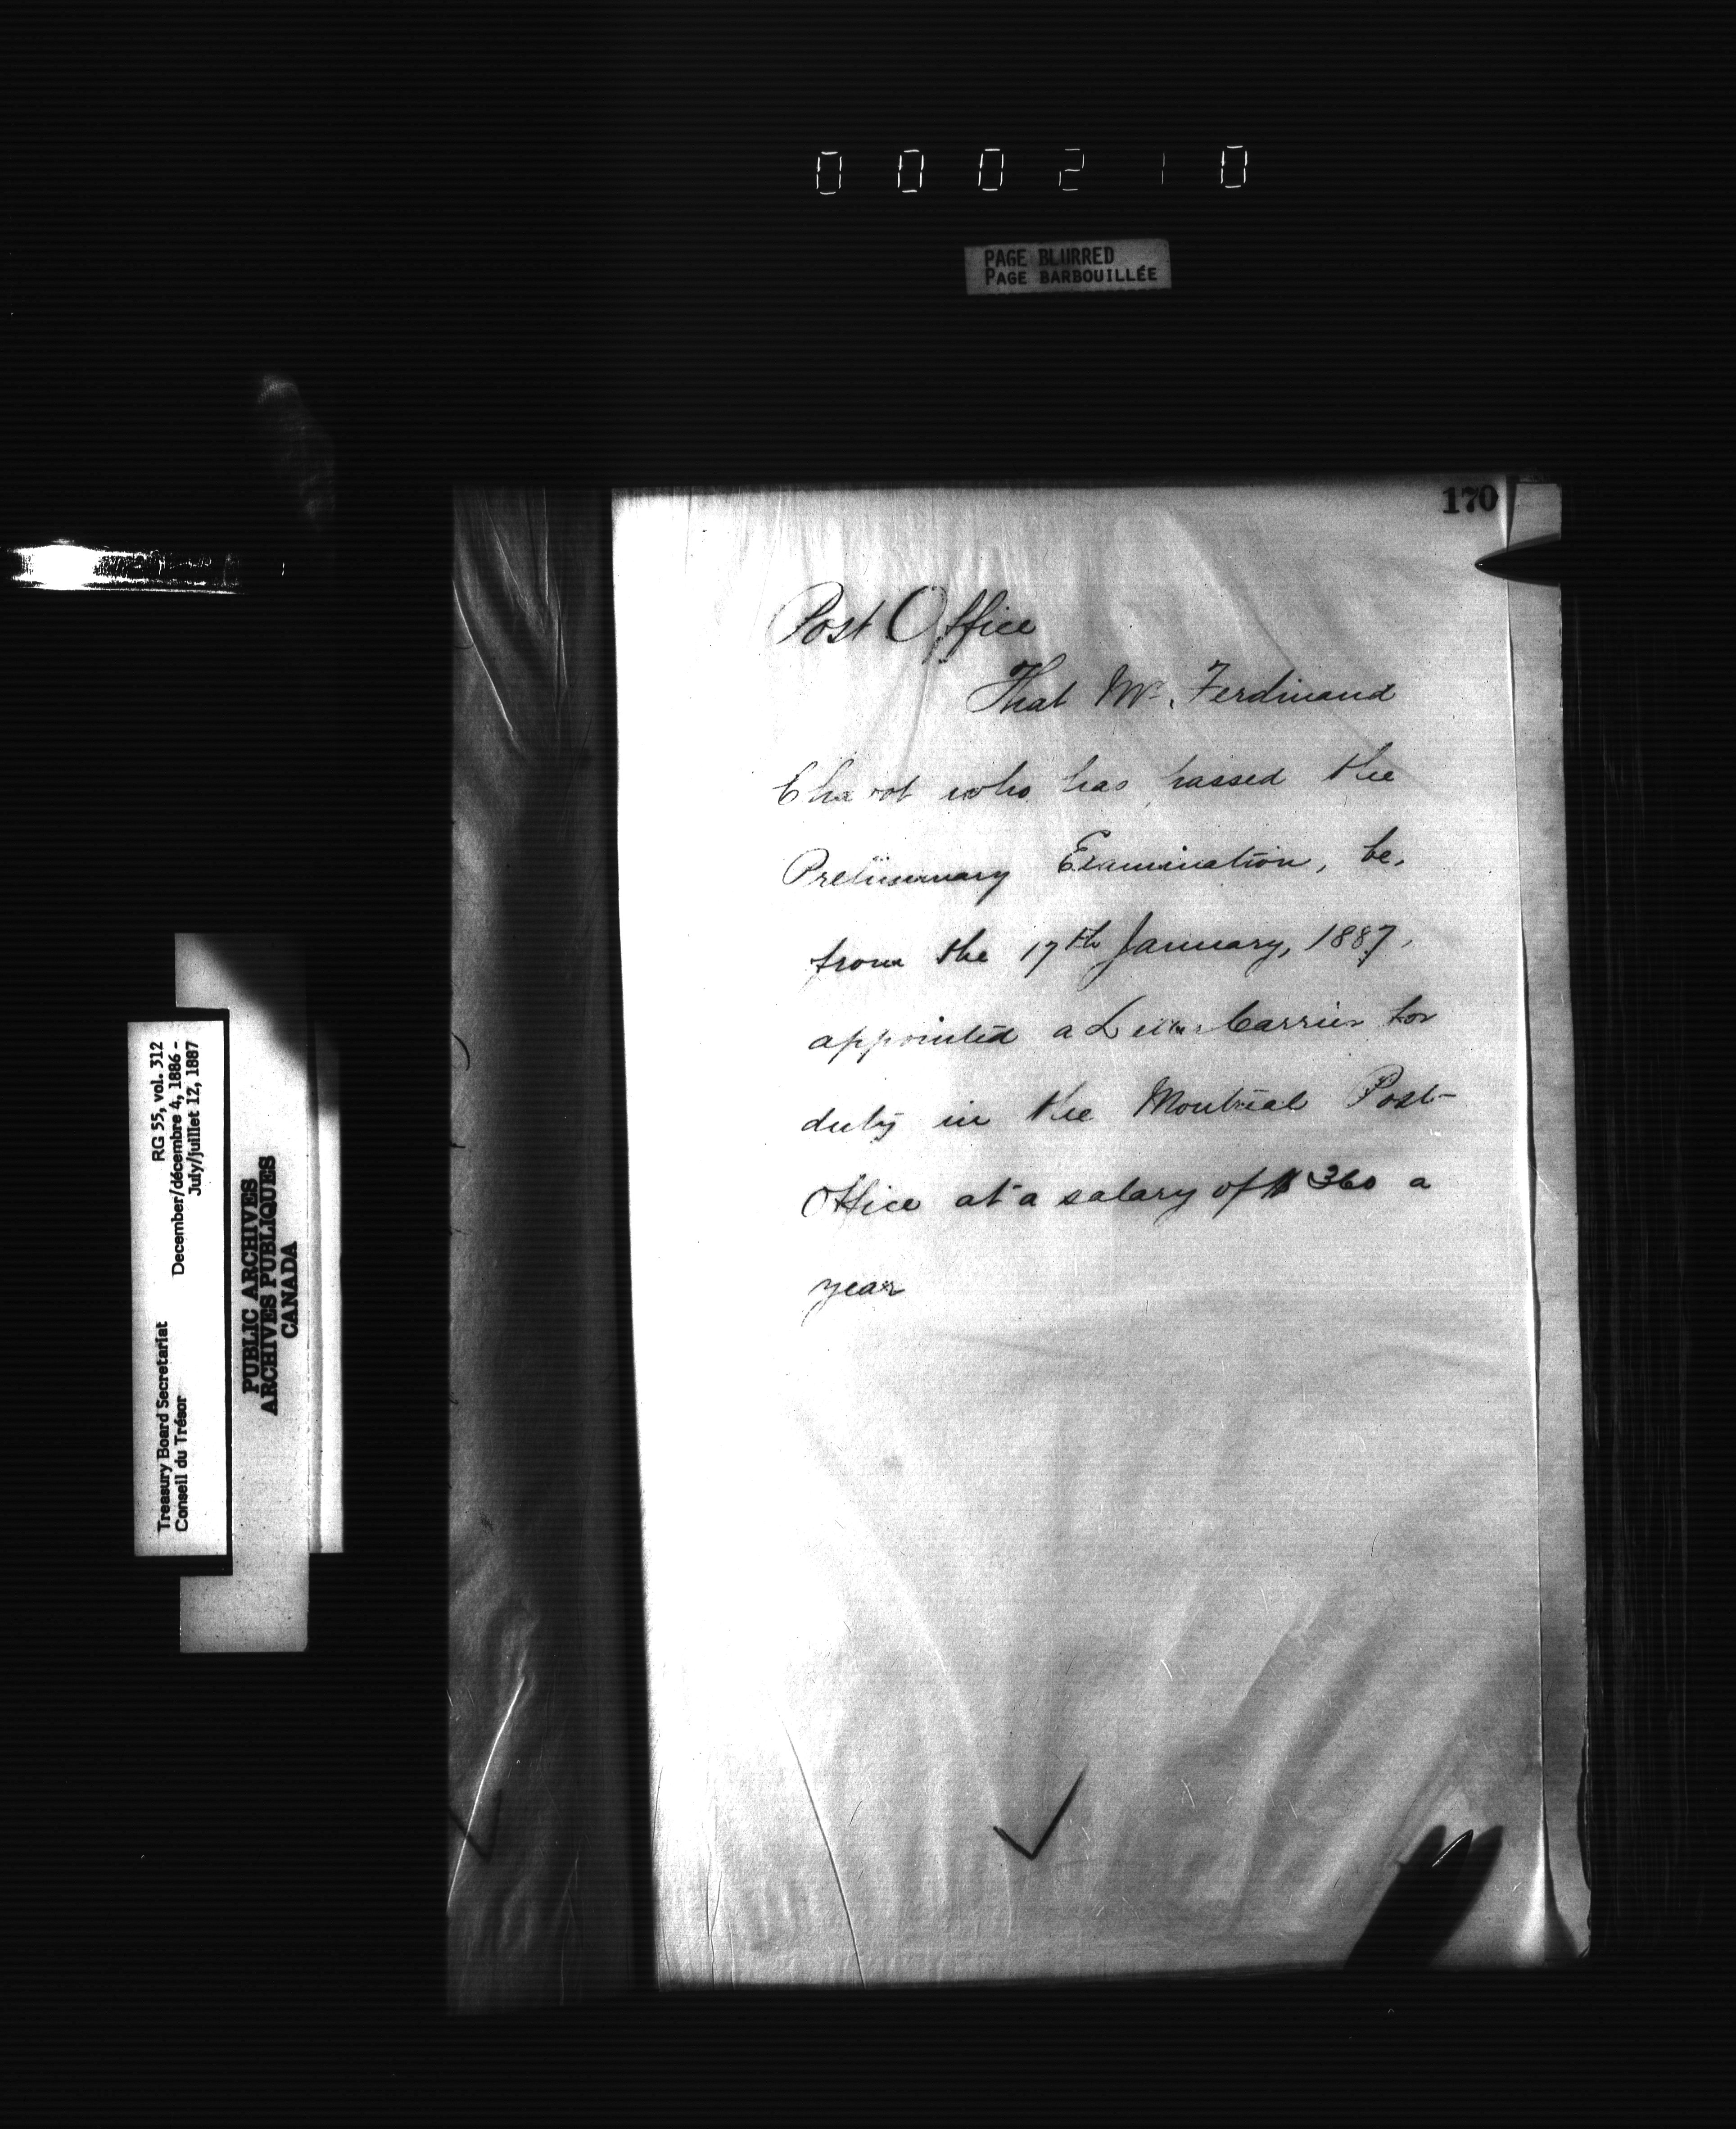 000210
PAGE BLURRED
PAGE BARBOUILLÉE
170
Post Office
That Mr. Ferdinand
who has passed the
Preliminary Examination, be,
from the 17th January, 1887,
appointed a Letter Carrier for
duty in the Montreal Post-
Office at a salary of $360 a
year
RG 55, vol. 312
December/décembre 4, 1886 -
July/juillet 12, 1887
Treasury Board Secretariat
Conseil du Trésor
PUBLIC ARCHIVES
ARCHIVES PUBLIQUES
CANADA